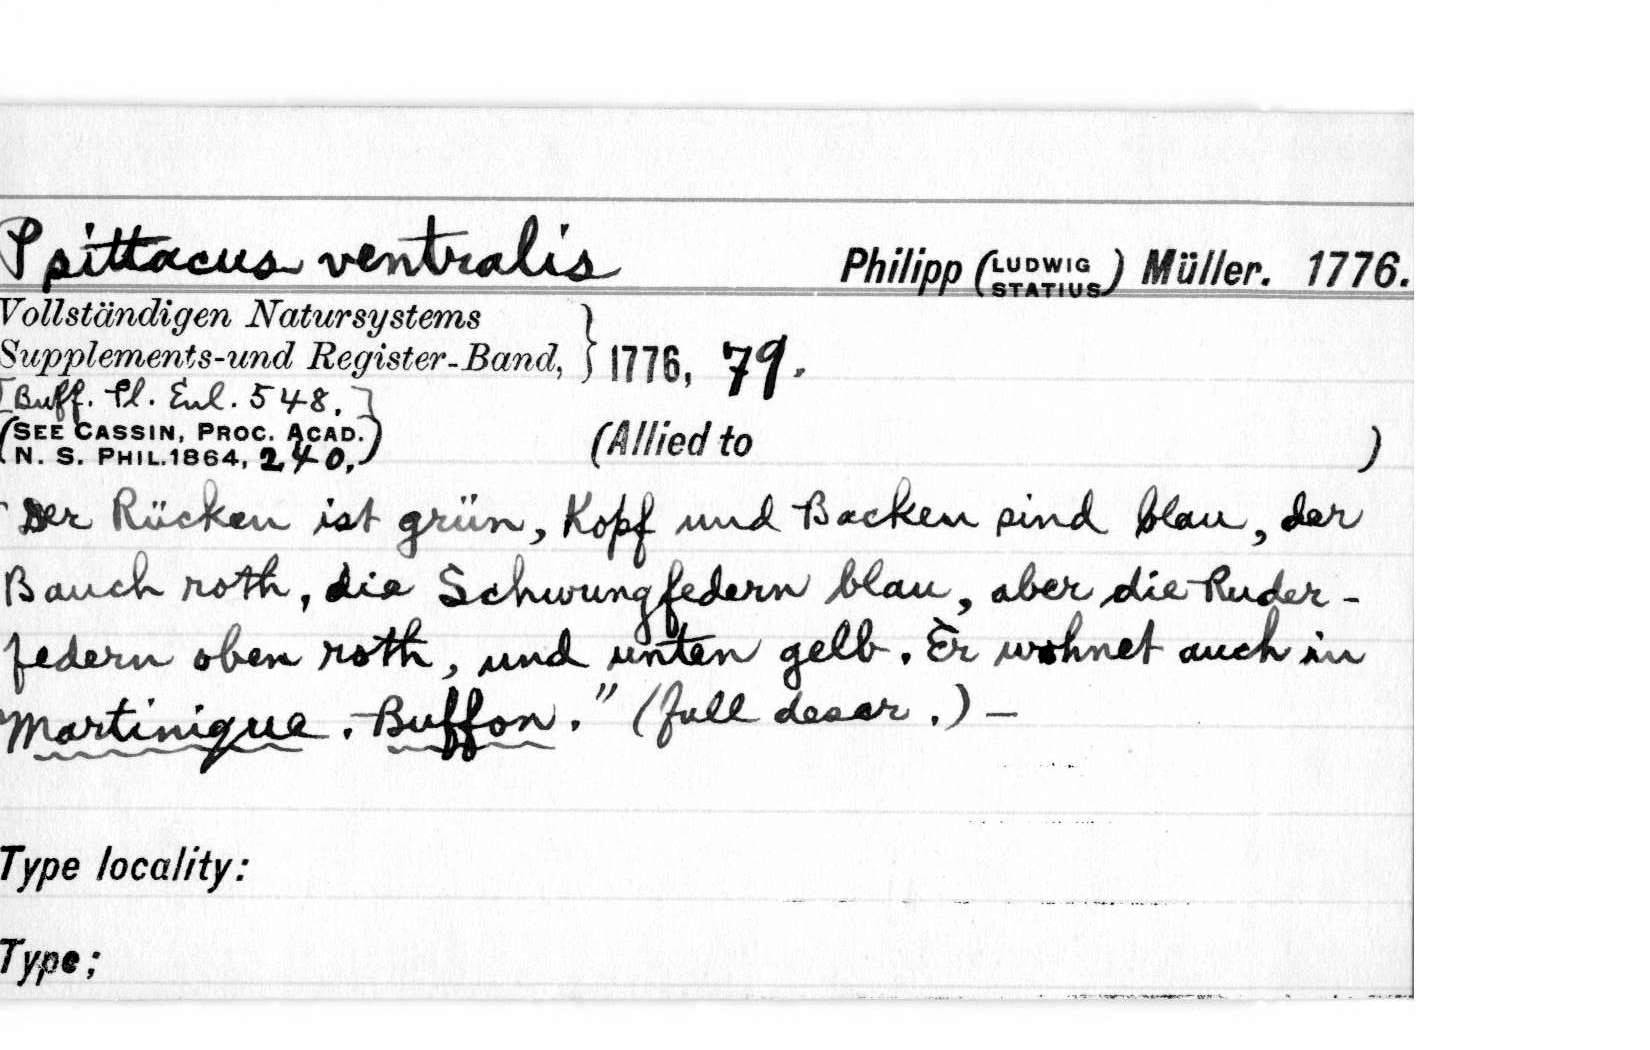 Psittacus ventralis Philipp (LUDWIG STATIUS) Müller. 1776.
Vollständigen Natursystems
Supplements-und Register-Band, } 1776, 79.
[Buff. Pl. Enl. 548.]
(SEE CASSIN, PROC. ACAD.
N. S. PHIL. 1864, 240.) (Allied to )
"Der Rücken ist grün, Kopf und Backen sind blau, der
Bauch roth, die Schwungfedern blau, aber die Ruder-
federn oben roth, und unten gelb. Er wohnet auch in
Martinique. Buffon." (full descr.) —
Type locality:
Type;